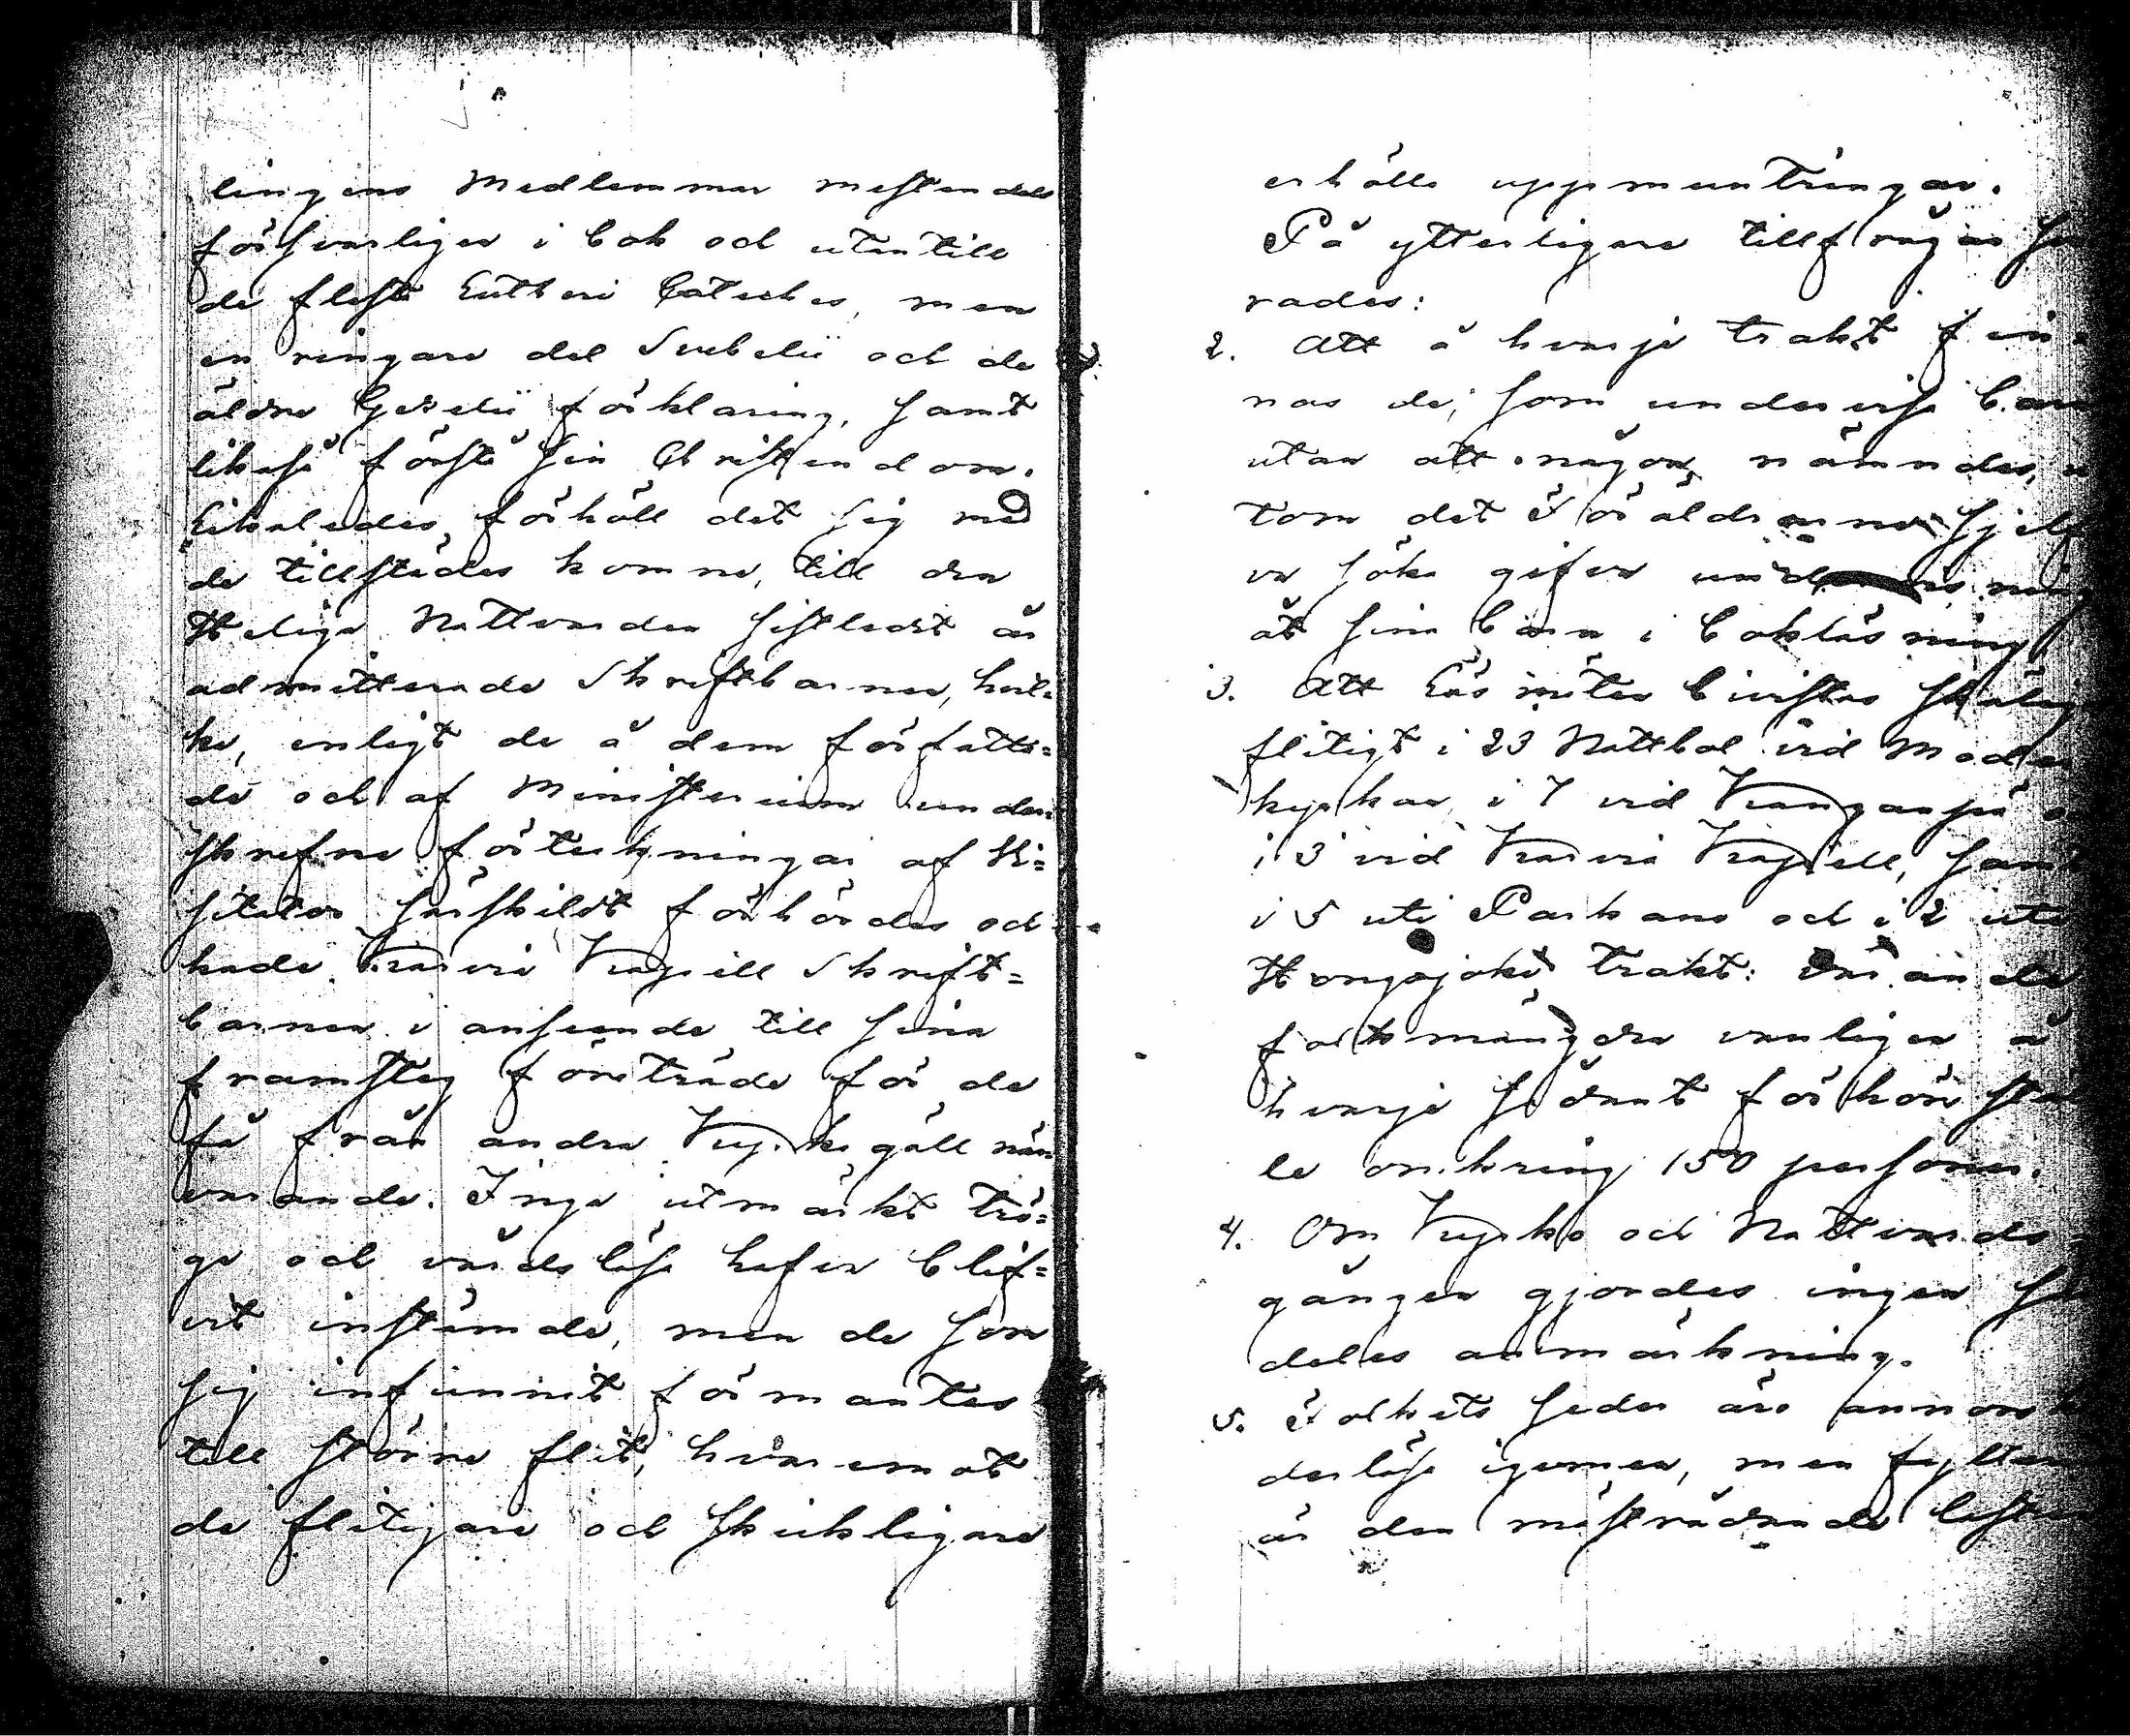 lingens Medlemmar mestendels
försvarligen i bok och utantill
de fleste Lutheri Cateches, men
en ringare del Svebelii och de
äldre Gezelii förklaring, samt
likaså förstå sin Christendom.
Likaledes förhöll det sig med
de tillstädes komne, till den
Heliga Nattvarden sistledit år
admitterade Skriftbarnen, hvil=
ka, enligt de å dem författa=
de och af Ministerium under=
skrefne förteckningar af Vi=
sitator särskildt förhördes och
hade Karvia Kapell Skrift=
barnen i anseende till sina
framsteg företräde för de
få från andra Kyrkogäll när
varande. Inga utmärkt trö=
ga och vårdslösa hafva blif=
vit instämde, men de som
sig infunnit förmantes
till större flit, hvaremot
de flitigare och skickligare
erhöllo uppmuntringar.
På ytterligare tillfrågan
rades:
2. Att å hvarje trakt fin=
nas de, som undervisa barn
utan att någon nämndes, u
tom det Föräldrarne sjelf
va söka gifva undervisning
åt sina barn i bokläsning
3. Att Läsmöten bivistas
flitigt i 23 Matthal vid Moder
kyrkan, i 7 vid Kangaspä o
i 3 vid Karvia Kapell, samt
i 5 uti Parkano och i 2 uti
Hongojoki trakt:
folkmängden vanligen å
hvarje sådant förhörs stäl
le omkring 150 personer.
4. Om Kyrko och Nattvards=
gången gjordes ingen
deles anmärkning.
5. Folkets seder äro annors
derlösa igemen, men fylleri
är den mäst rådande lasten